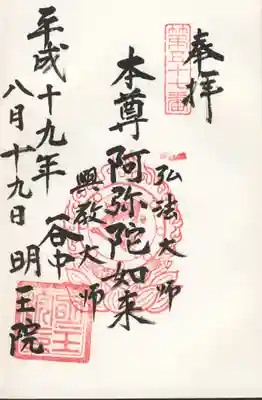 奉拝
第五十七番
弘法大师
本尊阿弥陀如来
興教大师
谷中
明王院
平成十九年
八月十九日